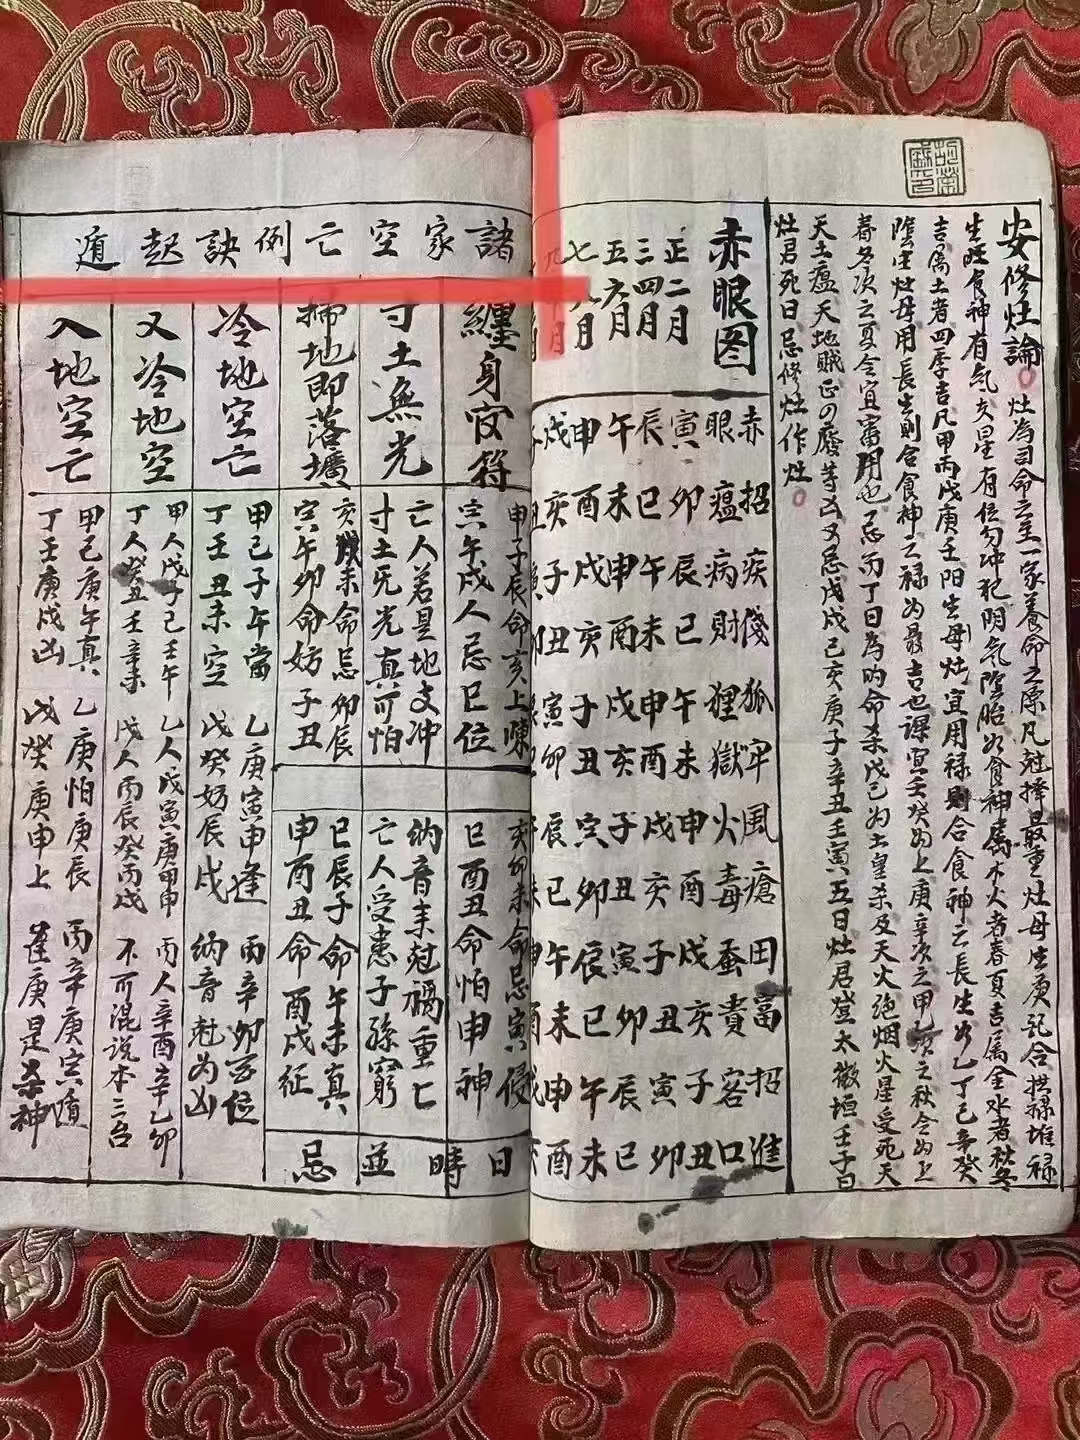 安修灶論 灶為司命之主一家養命之原凡尅擇最重灶母生庚記合拱祿堆祿
生旺食神有氣亥星有位勿冲犯阴氣陰胎如食神屬木火者春夏吉属金水者秋冬
吉属土者四季吉凡甲丙戊庚壬阳生母灶宜用祿則合食神云長生如乙丁己辛癸
陰生灶母用長生則合食神之祿為最吉也課宜壬癸為上庚辛次之甲乙次之秋令为上
春冬次之夏令宜審用也忌丙丁日為的命杀戊己为土皇杀及天火绝烟火星受死天
天土瘟天地贼正四廢等凶又忌戊戌己亥庚子辛丑壬寅五日灶君登太微垣壬子日
灶君死日忌修灶作灶
赤眼图
赤招疾伐狐牢風瘡田富招進
眼瘟病財狸獄火毒蚕貴客口
正二月 寅卯辰巳午未申酉戌亥子丑
三四月 辰巳午未申酉戌亥子丑寅卯
五六月 午未申酉戌亥子丑寅卯辰巳
七八月 申酉戌亥子丑寅卯辰巳午未
戌亥子丑寅卯辰巳午未申酉
諸家空亡例訣起遁
纏身官符
申子辰命亥上陳
寅午戌人忌巳位
亥卯未命忌寅侵
巳酉丑命怕申神
寸土無光
亡人若是地支冲
寸土旡光真可怕
纳音来尅禍重亡
亡人受患子孫窮
掃地即落壙
亥未命忌卯辰
寅午卯命妨子丑
巳辰子命午未真
申酉丑命酉戌征
日時並忌
冷地空亡
甲己子午當 乙庚寅申逢 丙辛卯酉位
丁壬丑未空 戊癸妨辰戌 纳音尅为凶
又冷地空
甲人戊子己壬午 乙人戊寅庚甲申 丙人辛酉辛乙卯
丁人癸丑壬辛未 戊人丙辰癸丙戌 不可混説本三台
入地空亡
甲己庚午真 乙庚怕庚辰 丙辛庚寅遁
丁壬庚戌凶 戊癸庚申上 崔庚是杀神